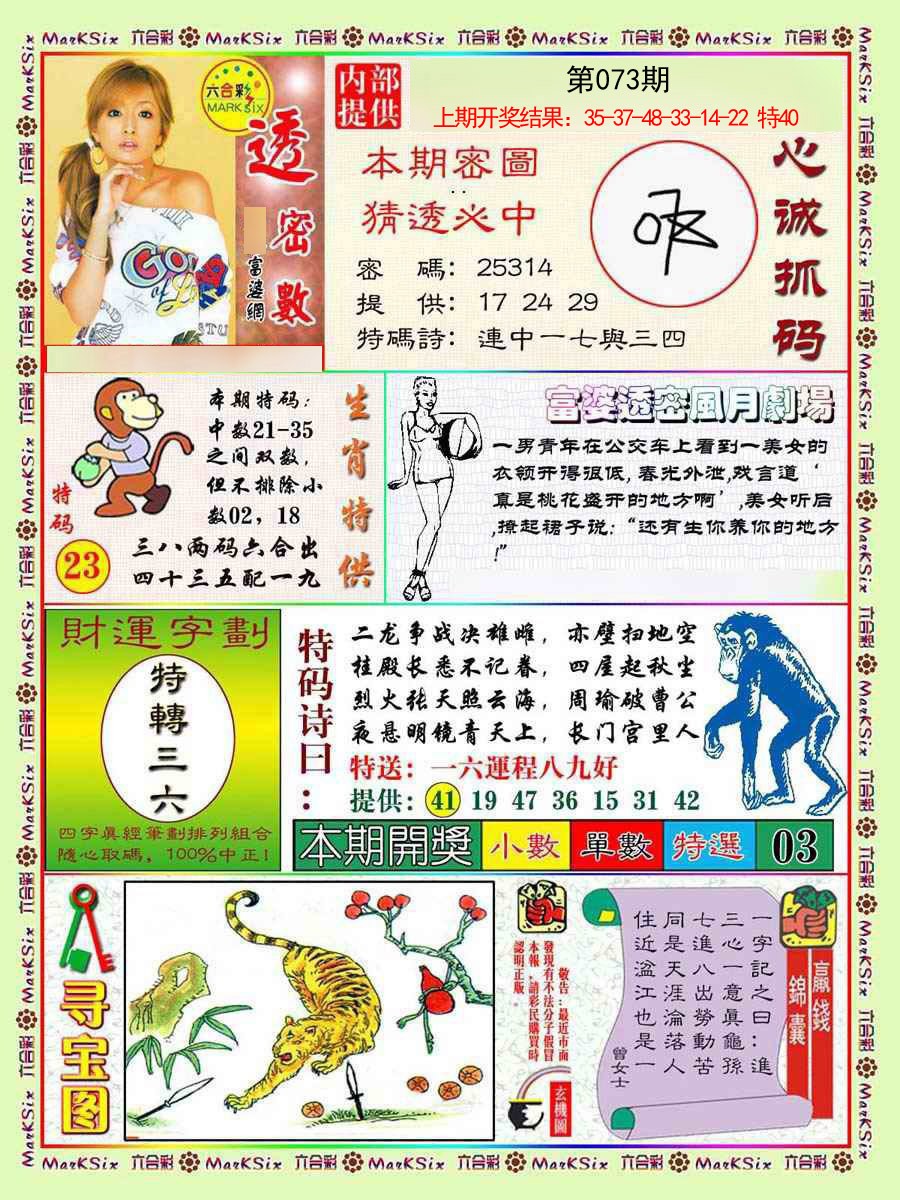 MarKSix 六合彩 MarKSix 六合彩 MarKSix 六合彩 MarKSix 六合彩 MarKSix 六合彩
六合彩
MARK six
透密數
富婆網
内部
提供
第073期
上期开奖结果：35-37-48-33-14-22 特40
本期密圖
猜透必中
密 碼：25314
提 供：17 24 29
特碼詩：連中一七與三四
心诚抓码
本期特码：
中数21-35
之间双数，
但不排除小
数02，18
特码
23
三八两码六合出
四十三五配一九
生肖特供
富婆透密風月劇場
一男青年在公交车上看到一美女的
衣领开得很低，春光外泄，戏言道‘
真是桃花盛开的地方啊’，美女听后
，撩起裙子说：“还有生你养你的地方
！”
財運字劃
特轉三六
四字眞經筆劃排列組合
隨心取碼，100%中正！
特码诗曰：
二龙争战决雄雌，赤壁扫地空
桂殿长愁不记春，四屋起秋尘
烈火张天照云海，周瑜破曹公
夜悬明镜青天上，长门宫里人
特送：一六運程八九好
提供：41 19 47 36 15 31 42
本期開獎 小數 單數 特選 03
寻宝图
敬告：最近市面
發現有不法分子假冒
本報，請彩民購買時
認明正版。
玄機圖
贏錢
錦囊
一字記之曰：進
三心一意眞龜孫
七進八出勞動苦
同是天涯淪落人
住近湓江也是一
曾女士
MarKSix 六合彩 MarKSix 六合彩 MarKSix 六合彩 MarKSix 六合彩 MarKSix 六合彩